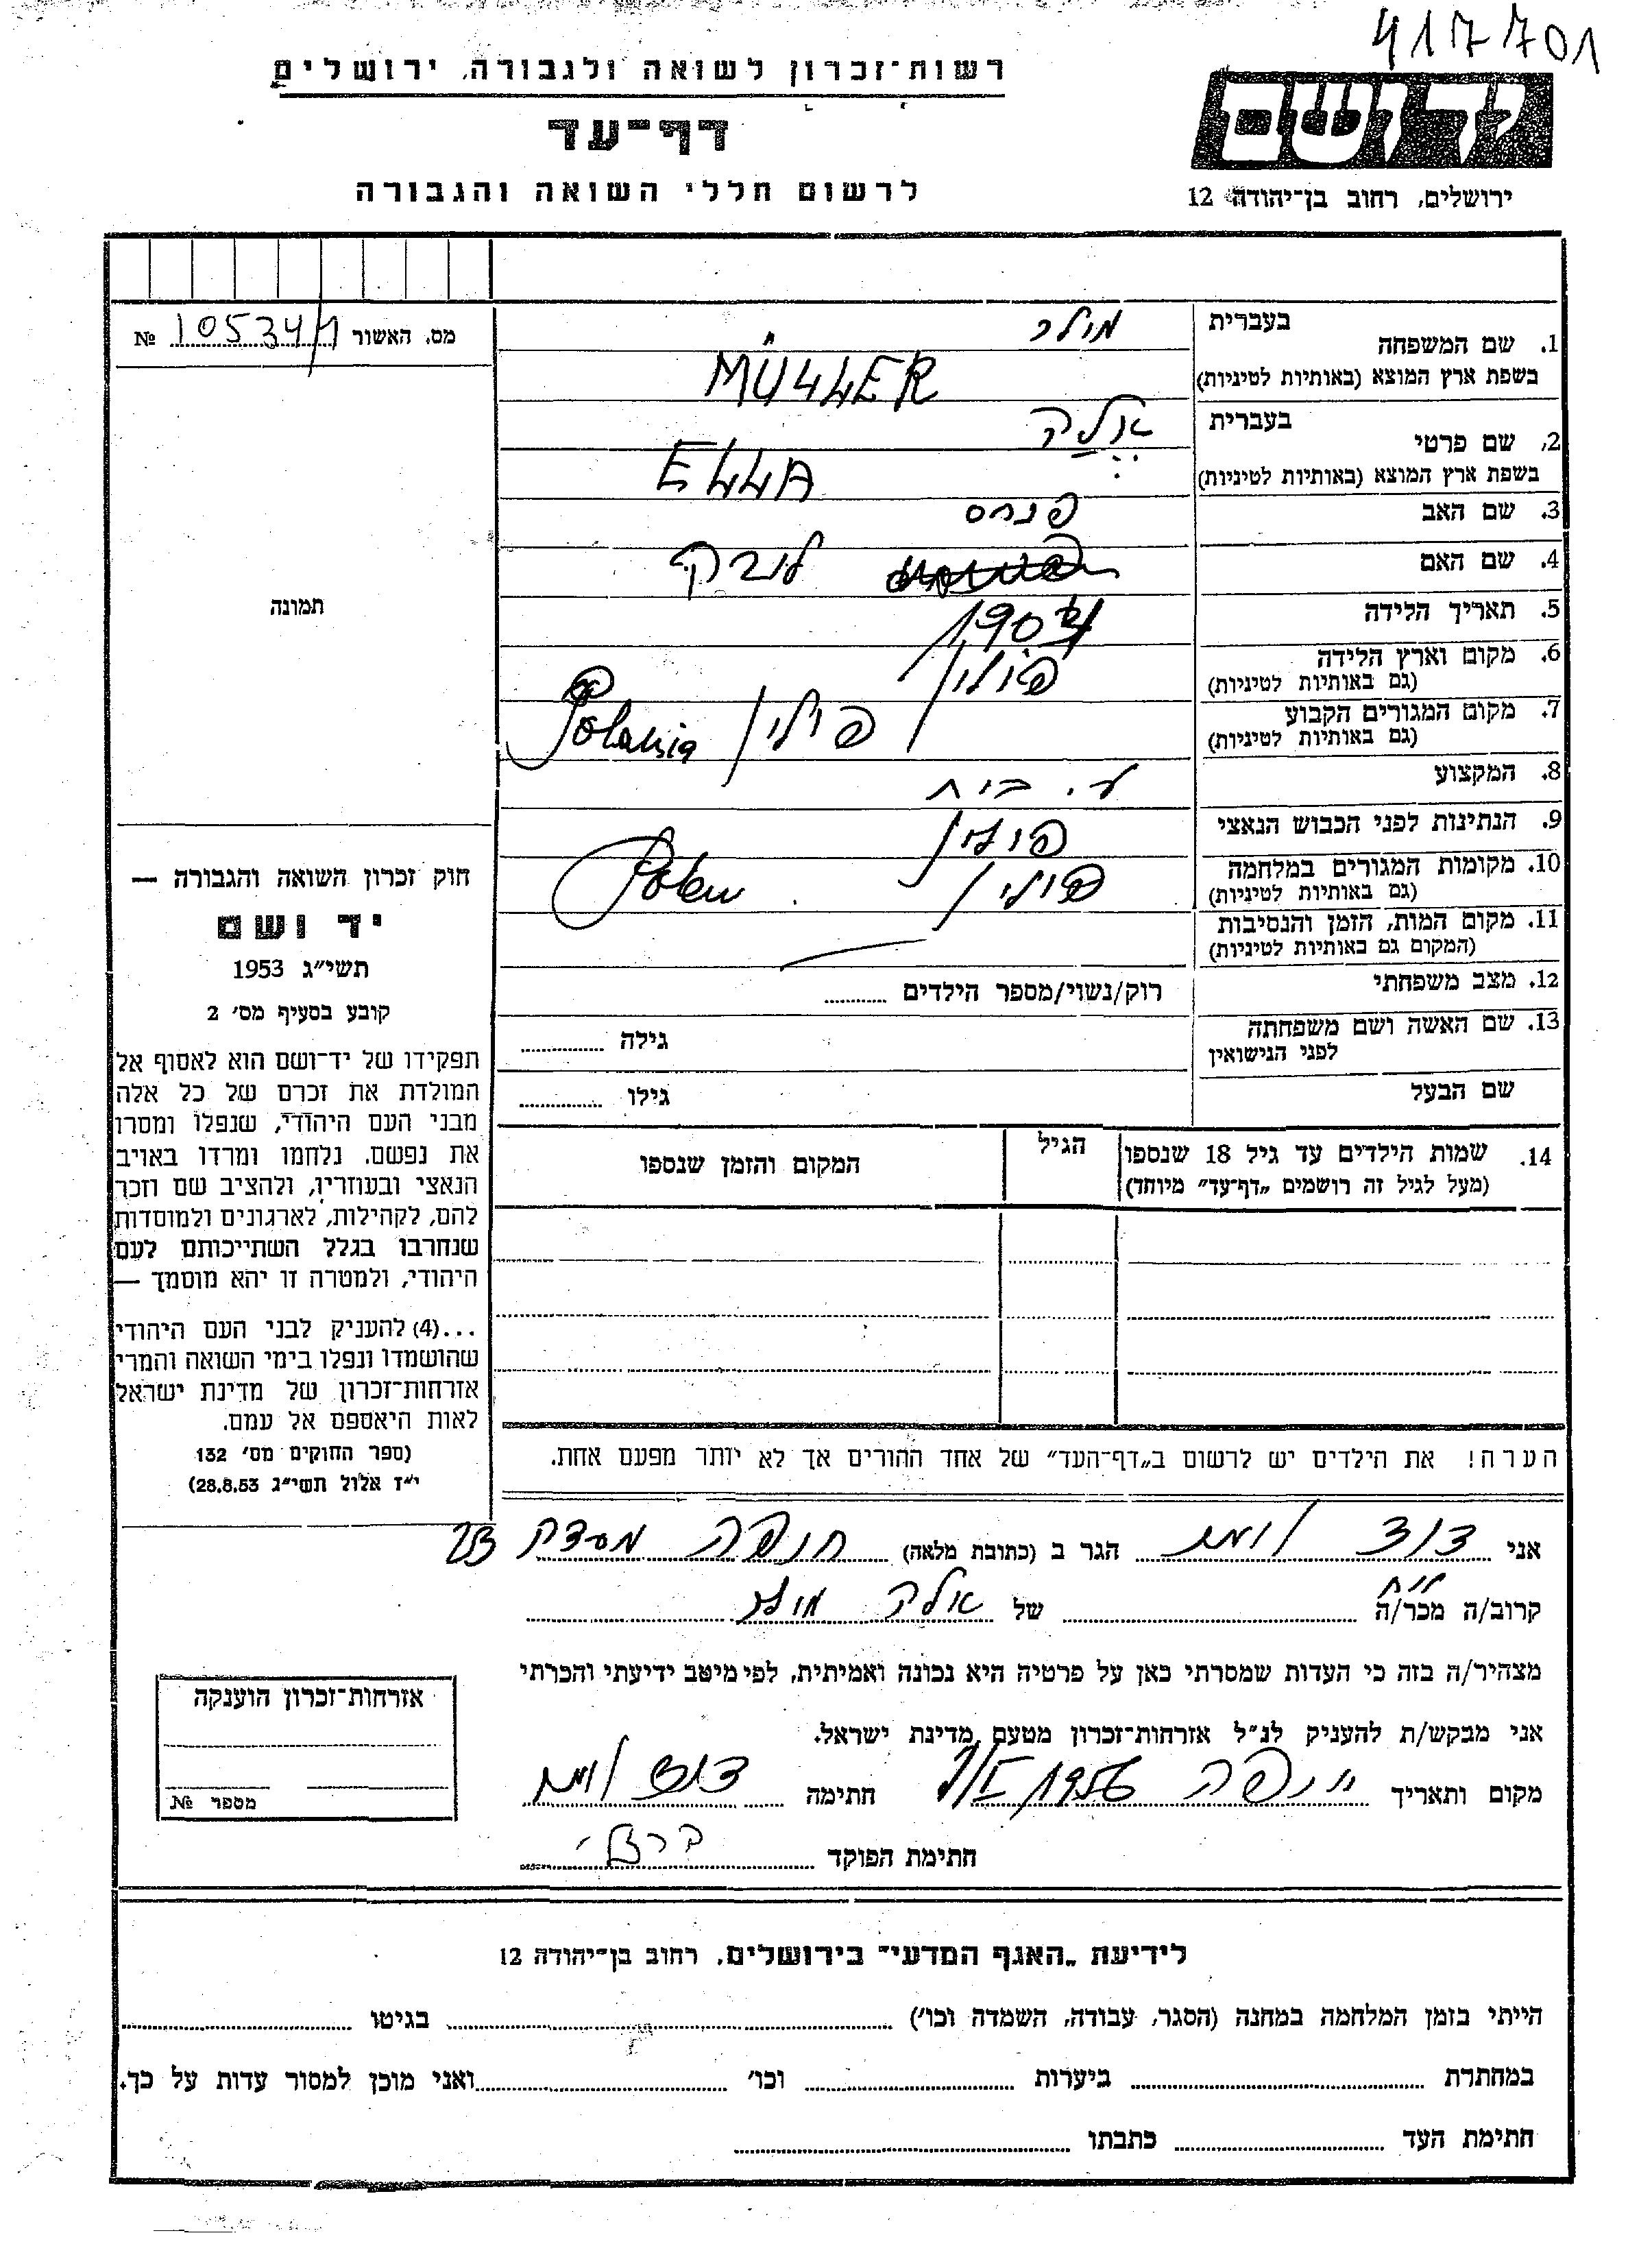 417701
רשות־זכרון לשואה ולגבורה, ירושלים
דף־עד
לרשום חללי השואה והגבורה
יד ושם
ירושלים, רחוב בן־יהודה 12
מס. האשור 105341 №
1. שם המשפחה בעברית מולר
בשפת ארץ המוצא (באותיות לטיניות) MÜLLER
2. שם פרטי בעברית אלה
בשפת ארץ המוצא (באותיות לטיניות) ELLA
3. שם האב פנחס
4. שם האם
5. תאריך הלידה
6. מקום וארץ הלידה פולין
(גם באותיות לטיניות)
7. מקום המגורים הקבוע פולין
(גם באותיות לטיניות)
8. המקצוע ע. בית
9. הנתינות לפני הכבוש הנאצי פולין
10. מקומות המגורים במלחמה פולין Polen
(גם באותיות לטיניות)
11. מקום המות, הזמן והנסיבות
(המקום גם באותיות לטיניות)
12. מצב משפחתי רוק/נשוי/מספר הילדים
13. שם האשה ושם משפחתה גילה
לפני הנישואין
שם הבעל גילו
14. שמות הילדים עד גיל 18 שנספו הגיל המקום והזמן שנספו
(מעל לגיל זה רושמים „דף־עד" מיוחד)
תמונה
חוק זכרון השואה והגבורה —
יד ושם
תשי"ג 1953
קובע בסעיף מס׳ 2
תפקידו של יד־ושם הוא לאסוף אל
המולדת את זכרם של כל אלה
מבני העם היהודי, שנפלו ומסרו
את נפשם, נלחמו ומרדו באויב
הנאצי ובעוזריו, ולהציב שם וזכר
להם, לקהילות, לארגונים ולמוסדות
שנחרבו בגלל השתייכותם לעם
היהודי, ולמטרה זו יהא מוסמך —
...(4) להעניק לבני העם היהודי
שהושמדו ונפלו בימי השואה והמרי
אזרחות־זכרון של מדינת ישראל
לאות היאספם אל עמם.
(ספר החוקים מס׳ 132
י"ז אלול תשי"ג 28.8.53)
הערה! את הילדים יש לרשום ב„דף־העד" של אחד ההורים אך לא יותר מפעם אחת.
אני דוד הגר ב (כתובת מלאה) חיפה
קרוב/ה מכר/ה של אלה מולר
מצהיר/ה בזה כי העדות שמסרתי כאן על פרטיה היא נכונה ואמיתית, לפי מיטב ידיעתי והכרתי
אני מבקש/ת להעניק לנ"ל אזרחות־זכרון מטעם מדינת ישראל.
מקום ותאריך חיפה 1956 חתימה דוד
חתימת הפוקד
אזרחות־זכרון הוענקה
מספר №
לידיעת „האגף המדעי" בירושלים, רחוב בן־יהודה 12
הייתי בזמן המלחמה במחנה (הסגר, עבודה, השמדה וכו׳) בגיטו
במחתרת ביערות וכו׳ ואני מוכן למסור עדות על כך.
חתימת העד כתבתו